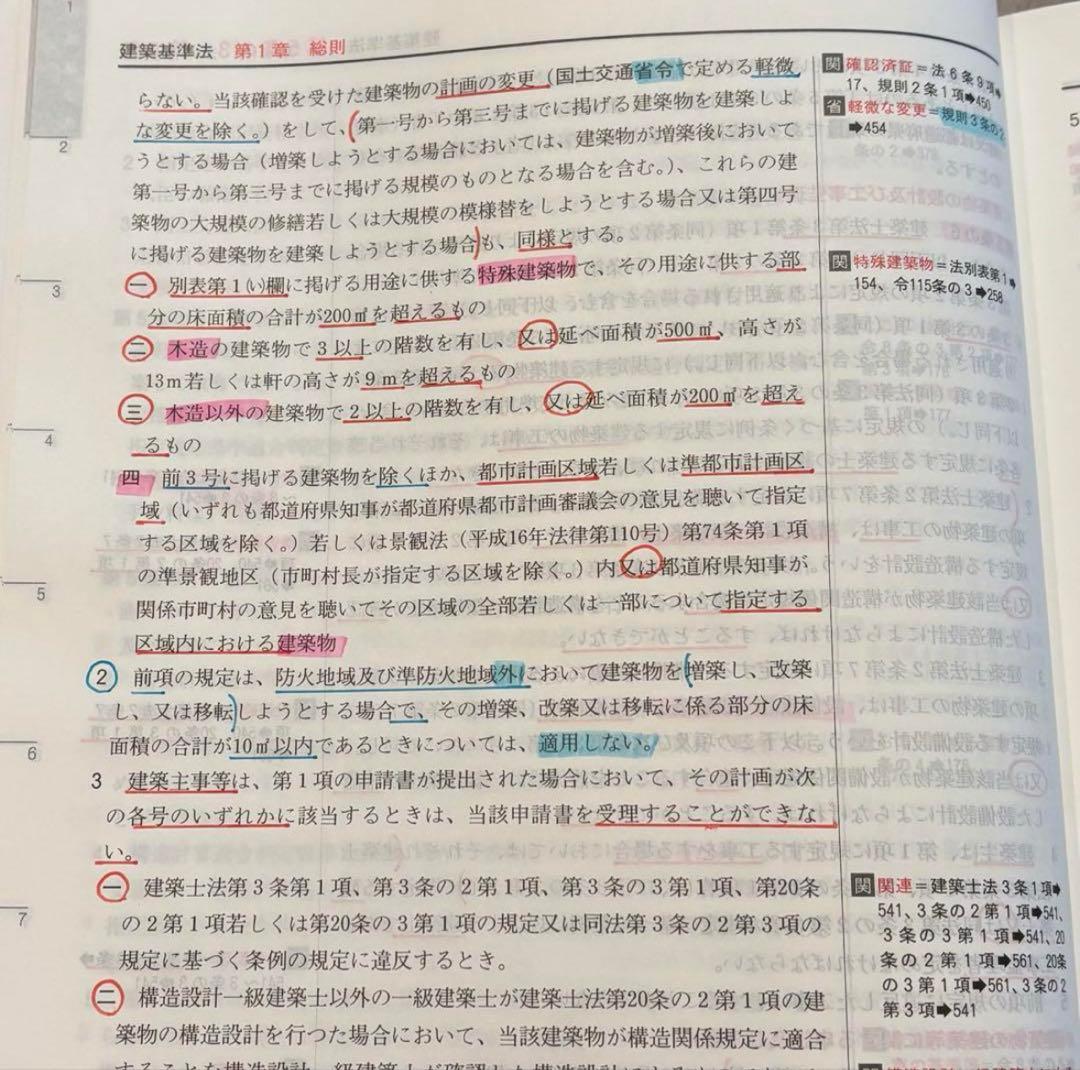 1
建築基準法 第1章 総則
らない。当該確認を受けた建築物の計画の変更(国土交通省令で定める軽微
な変更を除く。)をして、(第一号から第三号までに掲げる建築物を建築しよ
うとする場合(増築しようとする場合においては、建築物が増築後において
第一号から第三号までに掲げる規模のものとなる場合を含む。)、これらの建
築物の大規模の修繕若しくは大規模の模様替をしようとする場合又は第四号
に掲げる建築物を建築しようとする場合)も、同様とする。
一 別表第1(い)欄に掲げる用途に供する特殊建築物で、その用途に供する部
分の床面積の合計が200㎡を超えるもの
二 木造の建築物で3以上の階数を有し、又は延べ面積が500㎡、高さが
13m若しくは軒の高さが9mを超えるもの
三 木造以外の建築物で2以上の階数を有し、又は延べ面積が200㎡を超え
るもの
四 前3号に掲げる建築物を除くほか、都市計画区域若しくは準都市計画区
域(いずれも都道府県知事が都道府県都市計画審議会の意見を聴いて指定
する区域を除く。)若しくは景観法(平成16年法律第110号)第74条第1項
の準景観地区(市町村長が指定する区域を除く。)内又は都道府県知事が
関係市町村の意見を聴いてその区域の全部若しくは一部について指定する
区域内における建築物
2 前項の規定は、防火地域及び準防火地域外において建築物を(増築し、改築
し、又は移転)しようとする場合で、その増築、改築又は移転に係る部分の床
面積の合計が10㎡以内であるときについては、適用しない。
3 建築主事等は、第1項の申請書が提出された場合において、その計画が次
の各号のいずれかに該当するときは、当該申請書を受理することができな
い。
一 建築士法第3条第1項、第3条の2第1項、第3条の3第1項、第20条
の2第1項若しくは第20条の3第1項の規定又は同法第3条の2第3項の
規定に基づく条例の規定に違反するとき。
二 構造設計一級建築士以外の一級建築士が建築士法第20条の2第1項の建
築物の構造設計を行つた場合において、当該建築物が構造関係規定に適合
することを構造設計一級建築士が確認した構造設計による
関 確認済証=法6条9項➡
17、規則2条1項➡450
省 軽微な変更=規則3条の2
➡454
関 特殊建築物=法別表第1➡
154、令115条の3➡258
関 関連=建築士法3条1項➡
541、3条の2第1項➡541、
3条の3第1項➡541、20
条の2第1項➡561、20条
の3第1項➡561、3条の2
第3項➡541
2
3
4
5
6
7
5